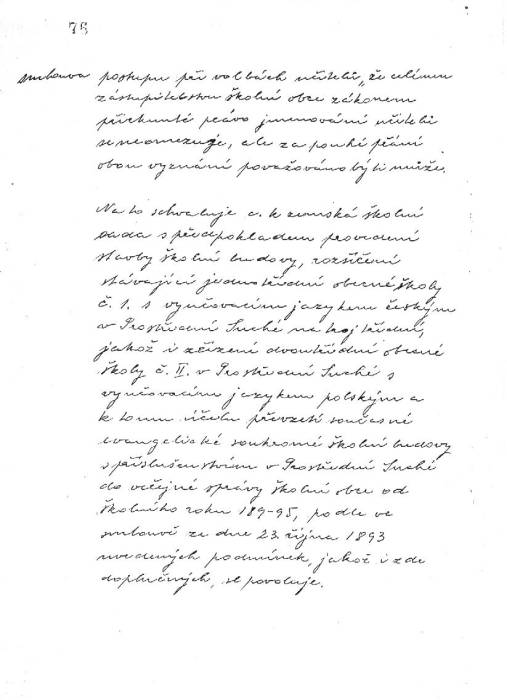 75
smlouva postupu při volbách učitelů, že celému
zástupitelstvu školní obce zákonem
přiřknuté právo jmenování učitelů
se neomezuje, ale za pouhé přání
obou vyznání považováno býti může.
Na to schvaluje c. k zemská školní
rada s předpokladem provedení
stavby školní budovy, rozšíření
stávající jednotřídní obecné školy
č. 1. s vyučovacím jazykem českým
v Prostřední Suché na trojtřídní,
jakož i zřízení dvoutřídní obecné
školy č. II. v Prostřední Suché s
vyučovacím jazykem polským a
k tomu účelu převzetí současné
evangelické soukromé školní budovy
s příslušenstvím v Prostřední Suché
do veřejné správy školní obce od
školního roku 189-95, podle ve
smlouvě ze dne 23. října 1893
uvedených podmínek, jakož i zde
doplněných, se povoluje.